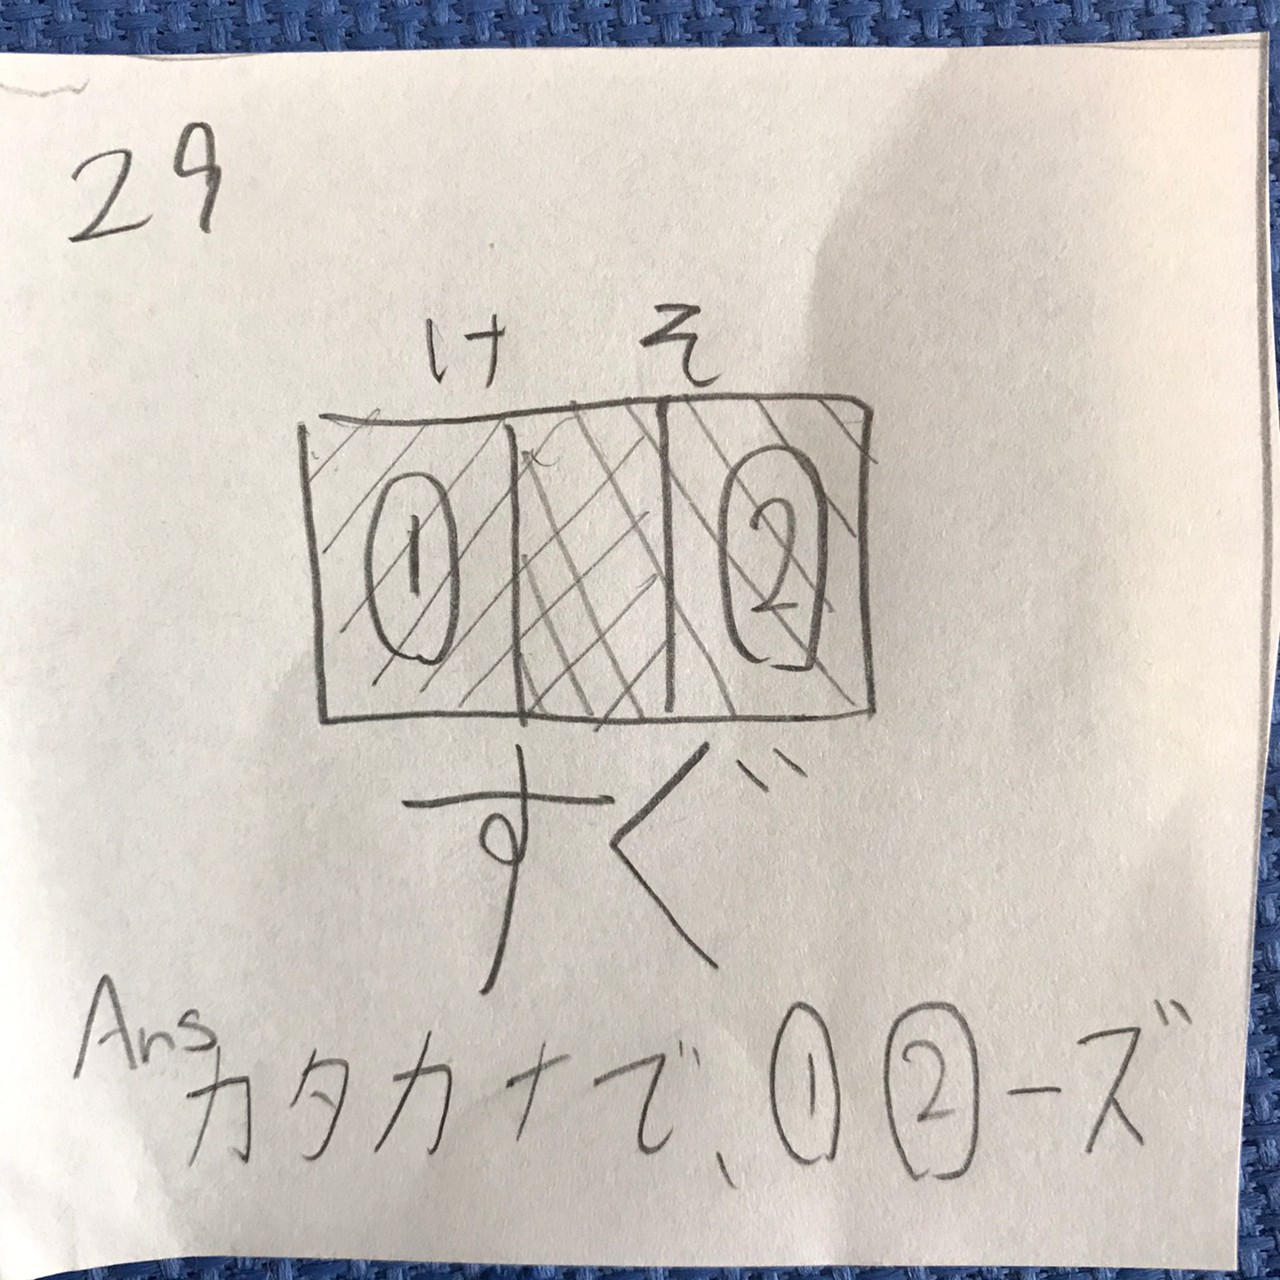 29
け そ
① ②
すぐ
Ans
カタカナで、①②ーズ